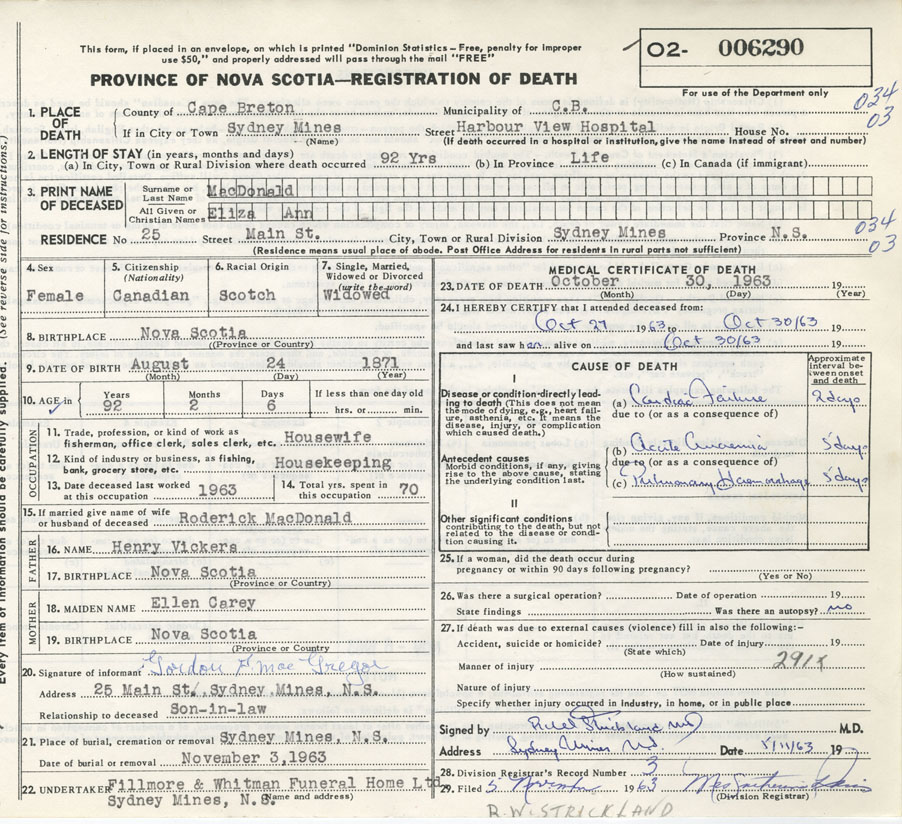 This form, if placed in an envelope, on which is printed "Dominion Statistics – Free, penalty for improper
use $50," and properly addressed will pass through the mail "FREE"
O2- 006290
For use of the Department only
PROVINCE OF NOVA SCOTIA—REGISTRATION OF DEATH
034
03
1. PLACE OF DEATH County of Cape Breton Municipality of C.B.
If in City or Town Sydney Mines Street Harbour View Hospital House No.
(Name) (If death occurred in a hospital or institution, give the name instead of street and number)
2. LENGTH OF STAY (in years, months and days)
(a) In City, Town or Rural Division where death occurred 92 Yrs (b) In Province Life (c) In Canada (if immigrant)
3. PRINT NAME OF DECEASED Surname or Last Name MacDonald
All Given or Christian Names Eliza Ann
RESIDENCE No 25 Street Main St. City, Town or Rural Division Sydney Mines Province N.S.
034
03
(Residence means usual place of abode. Post Office Address for residents in rural parts not sufficient)
4. Sex Female
5. Citizenship (Nationality) Canadian
6. Racial Origin Scotch
7. Single, Married, Widowed or Divorced (write the word) Widowed
8. BIRTHPLACE Nova Scotia
(Province or Country)
9. DATE OF BIRTH August 24 1871
(Month) (Day) (Year)
10. AGE in Years 92 Months 2 Days 6 If less than one day old hrs. or min.
OCCUPATION
11. Trade, profession, or kind of work as
fisherman, office clerk, sales clerk, etc. Housewife
12. Kind of industry or business, as fishing,
bank, grocery store, etc. Housekeeping
13. Date deceased last worked at this occupation 1963
14. Total yrs. spent in this occupation 70
15. If married give name of wife
or husband of deceased Roderick MacDonald
FATHER
16. NAME Henry Vickers
17. BIRTHPLACE Nova Scotia
(Province or Country)
MOTHER
18. MAIDEN NAME Ellen Carey
19. BIRTHPLACE Nova Scotia
(Province or Country
20. Signature of informant Gordon MacGregor
Address 25 Main St., Sydney Mines, N.S.
Relationship to deceased Son-in-law
21. Place of burial, cremation or removal Sydney Mines, N.S.
Date of burial or removal November 3,1963
22. UNDERTAKER Fillmore & Whitman Funeral Home Ltd
Sydney Mines, N.S.
(Name and address)
MEDICAL CERTIFICATE OF DEATH
23. DATE OF DEATH October 30, 1963 19
(Month) (Day) (Year)
24. I HEREBY CERTIFY that I attended deceased from:
Oct 27 1963 to Oct 30/63 19
and last saw her alive on Oct 30/63 19
CAUSE OF DEATH
Approximate interval between onset and death
I
Disease or condition directly leading to death (This does not mean the mode of dying, e.g., heart failure, asthenia, etc. It means the disease, injury, or complication which caused death.)
(a) Cardiac Failure 2 days
due to (or as a consequence of)
Antecedent causes
Morbid conditions, if any, giving rise to the above cause, stating the underlying condition last.
(b) Acute 5 days
due to (or as a consequence of)
(c) Pulmonary Haemorrhage 5 days
II
Other significant conditions
contributing to the death, but not related to the disease or condition causing it.
25. If a woman, did the death occur during
pregnancy or within 90 days following pregnancy?
(Yes or No)
26. Was there a surgical operation? Date of operation 19
State findings Was there an autopsy? no
27. If death was due to external causes (violence) fill in also the following:–
Accident, suicide or homicide? Date of injury 19
(State which)
Manner of injury 291X
(How sustained)
Nature of injury
Specify whether injury occurred in Industry, in home, or in public place
Signed by Strickland MD M.D.
Address Sydney Mines Date 5/11/63 19
28. Division Registrar's Record Number 3
29. Filed 5 November 1963
(Division Registrar)
R.W. STRICKLAND
(See reverse side for instructions.)
Every item of information should be carefully supplied.